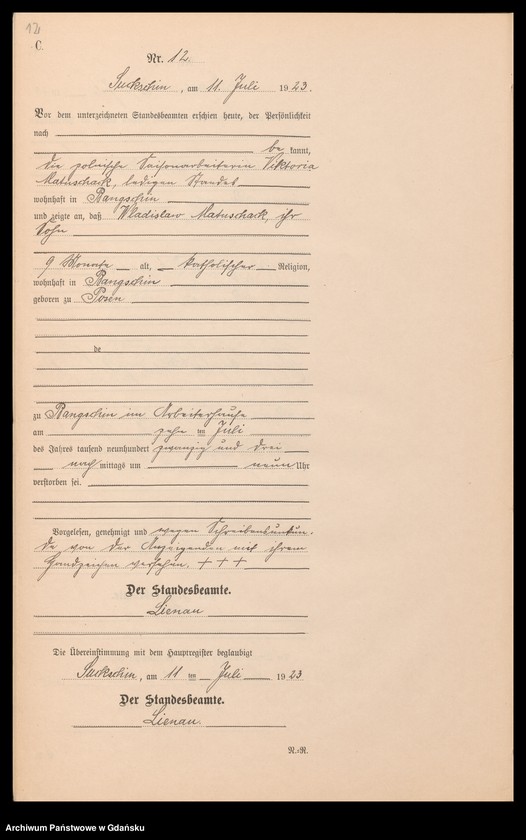 12
C.
Nr. 12.
Suckschin, am 11. Juli 1923.
Vor dem unterzeichneten Standesbeamten erschien heute, der Persönlichkeit
nach
be kannt,
die polnische Saisonarbeiterin Viktoria
Matuschack, ledigen Standes
wohnhaft in Rangschin
und zeigte an, daß Wladislaw Matuschack, ihr
Sohn
9 Monate alt, katholischer Religion,
wohnhaft in Rangschin
geboren zu Posen
de
zu Rangschin im Arbeiterhause
am zehn ten Juli
des Jahres tausend neunhundert zwanzig und drei
nach mittags um neun Uhr
verstorben sei.
Vorgelesen, genehmigt und wegen Schreibensunkun-
de von der Anzeigenden mit ihrem
Handzeichen versehen. + + +
Der Standesbeamte.
Lienau
Die Übereinstimmung mit dem Hauptregister beglaubigt
Suckschin, am 11 ten Juli 1923
Der Standesbeamte.
Lienau.
N.-R.
Archiwum Państwowe w Gdańsku